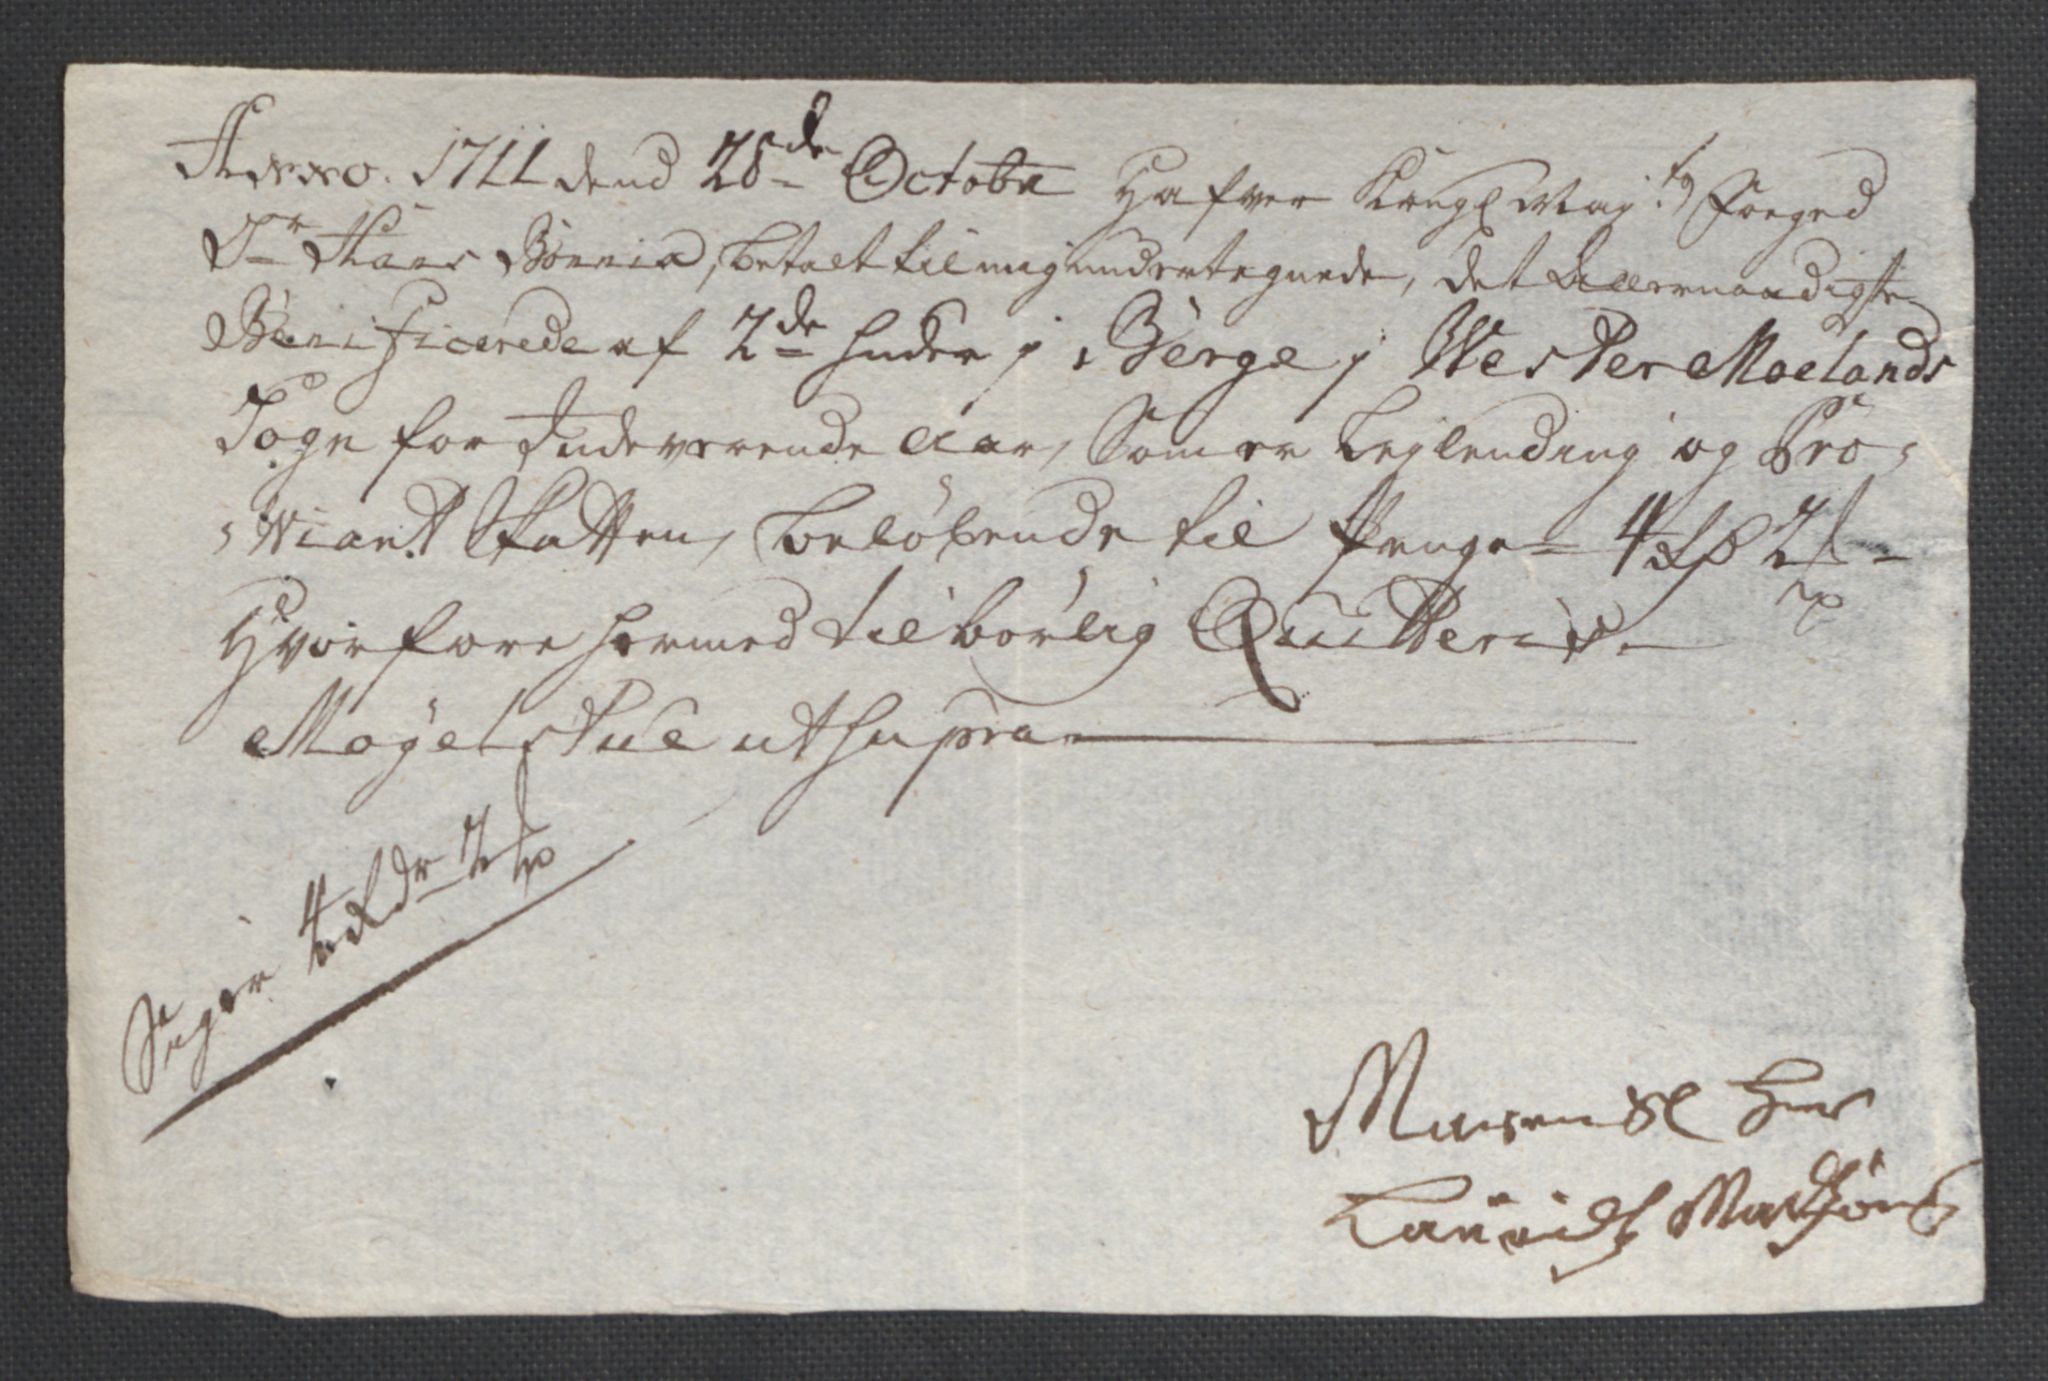 Anno. 1711 dend 28de Octobr Hafver Kongl May:tz Foeged
Sr Hans Bönnich, betalt til mig undertegnede, det allernaadigste
Benificerede af 2de huder j Berge j Wester Moelands
Sogn for Indeverende Aar, Som er Leylending og Pro-
viant Skatten, belöbende til Penge 4 Rd 2
Hvorfore hermed tilbörlig Quitteris.
Möyelstue ut supra
Siger 4 Rdr 2
Maren Sl Her
Lauridz Matzöns